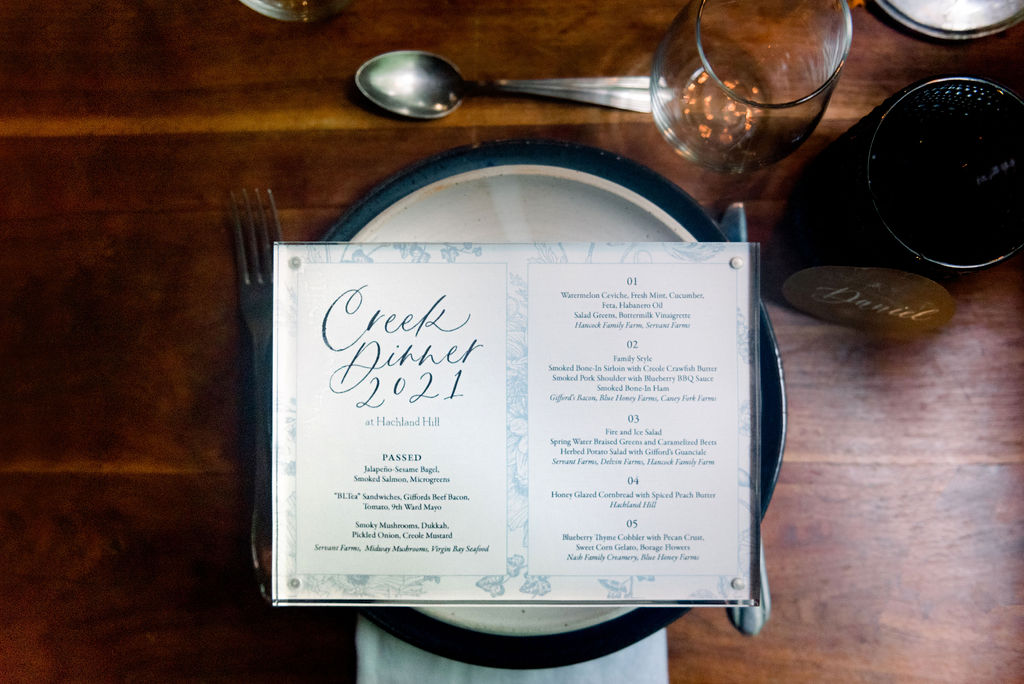 Creek
Dinner
2021
at Hachland Hill
PASSED
Jalapeño-Sesame Bagel,
Smoked Salmon, Microgreens
"BLTea" Sandwiches, Giffords Beef Bacon,
Tomato, 9th Ward Mayo
Smoky Mushrooms, Dukkah,
Pickled Onion, Creole Mustard
Servant Farms, Midway Mushrooms, Virgin Bay Seafood
01
Watermelon Ceviche, Fresh Mint, Cucumber,
Feta, Habanero Oil
Salad Greens, Buttermilk Vinaigrette
Hancock Family Farm, Servant Farms
02
Family Style
Smoked Bone-In Sirloin with Creole Crawfish Butter
Smoked Pork Shoulder with Blueberry BBQ Sauce
Smoked Bone-In Ham
Gifford's Bacon, Blue Honey Farms, Caney Fork Farms
03
Fire and Ice Salad
Spring Water Braised Greens and Caramelized Beets
Herbed Potato Salad with Gifford's Guanciale
Servant Farms, Delvin Farms, Hancock Family Farm
04
Honey Glazed Cornbread with Spiced Peach Butter
Hachland Hill
05
Blueberry Thyme Cobbler with Pecan Crust,
Sweet Corn Gelato, Borage Flowers
Nash Family Creamery, Blue Honey Farms
Daniel